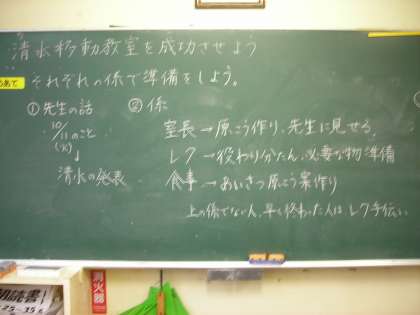 清水移動教室を成功させよう
めあて
それぞれの係で準備をしよう。
①先生の話
10/11のこと
(火)
↓
清水の発表
②係
室長→原こう作り、先生に見せる。
レク→役わり分たん、必要な物準備
食事→あいさつ原こう案作り
上の係でない人、早く終わった人はレク手伝い。
消火器
朝読書!
8:25~8:35